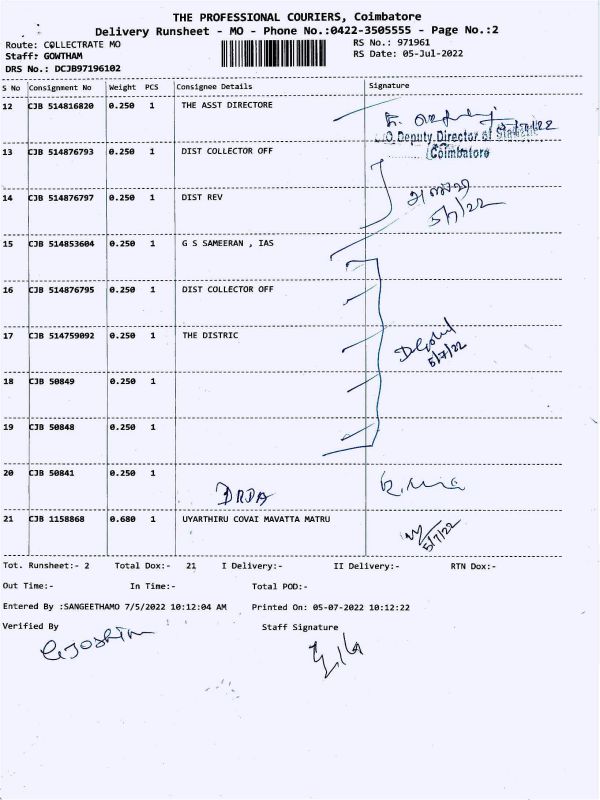 THE PROFESSIONAL COURIERS, Coimbatore
Delivery Runsheet - MO - Phone No.:0422-3505555 - Page No.:2
Route: COLLECTRATE MO RS No.: 971961
Staff: GOWTHAM RS Date: 05-Jul-2022
DRS No.: DCJB97196102
S No Consignment No Weight PCS Consignee Details Signature
12 CJB 514816820 0.250 1 THE ASST DIRECTORE
O Deputy Director of
Coimbatore
13 CJB 514876793 0.250 1 DIST COLLECTOR OFF
14 CJB 514876797 0.250 1 DIST REV
5/7/22
15 CJB 514853604 0.250 1 G S SAMEERAN , IAS
16 CJB 514876795 0.250 1 DIST COLLECTOR OFF
17 CJB 514759092 0.250 1 THE DISTRIC
5/7/22
18 CJB 50849 0.250 1
19 CJB 50848 0.250 1
20 CJB 50841 0.250 1
DRDA
21 CJB 1158868 0.680 1 UYARTHIRU COVAI MAVATTA MATRU
5/7/22
Tot. Runsheet:- 2 Total Dox:- 21 I Delivery:- II Delivery:- RTN Dox:-
Out Time:- In Time:- Total POD:-
Entered By :SANGEETHAMO 7/5/2022 10:12:04 AM Printed On: 05-07-2022 10:12:22
Verified By Staff Signature